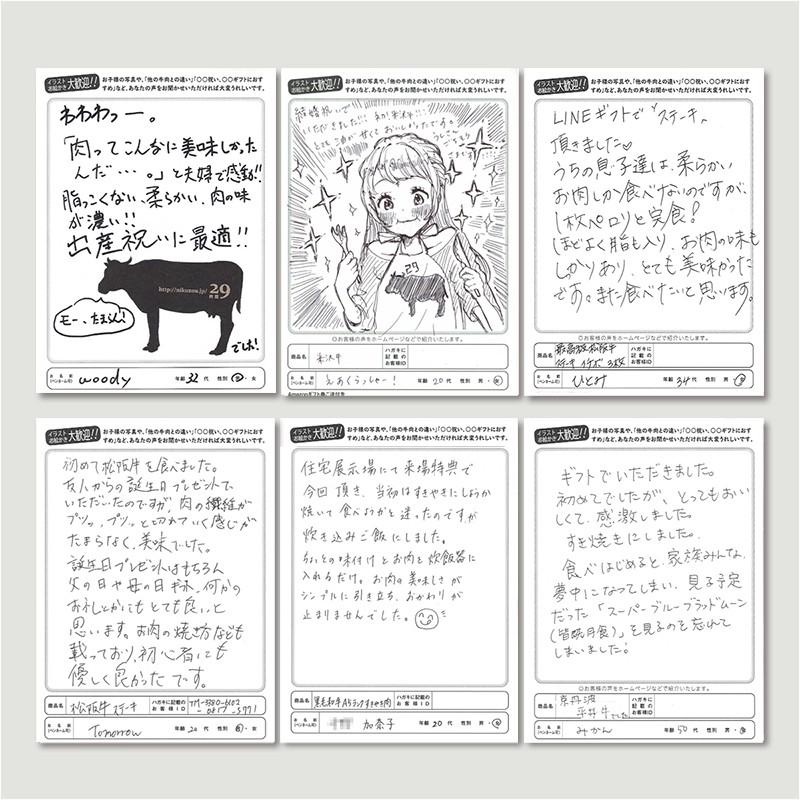 イラストお絵かき大歓迎!!
お子様の写真や、「他の牛肉との違い」「〇〇祝い、〇〇ギフトにおすすめ」など、あなたの声をお聞かせいただければ大変うれしいです。
わわわっー。
「肉ってこんなに美味しかったんだ…。」と夫婦で感動!!
脂っこくない、柔らかい、肉の味が濃い!!
出産祝いに最適!!
http://nikuzou.jp/ 29
モー、たまらん!
でしょ!
お名前(ペンネーム可) woody 年齢 32代 性別 男・女
イラストお絵かき大歓迎!!
お子様の写真や、「他の牛肉との違い」「〇〇祝い、〇〇ギフトにおすすめ」など、あなたの声をお聞かせいただければ大変うれしいです。
結婚祝いで
いただきました!!
とても油が甘くておいしかったです。
29
〇お客様の声をホームページなどで紹介いたします。
商品名 米沢牛 ハガキに記載のお客様ID
お名前(ペンネーム可) えあくらっしゃー! 年齢 20代 性別 男・女
イラストお絵かき大歓迎!!
お子様の写真や、「他の牛肉との違い」「〇〇祝い、〇〇ギフトにおすすめ」など、あなたの声をお聞かせいただければ大変うれしいです。
LINEギフトで"ステーキ"
頂きました♡
うちの息子達は、柔らかい
お肉しか食べないのですが、
1枚ペロリと完食!
ほどよく脂も入り、お肉の味も
しっかりあり、とても美味かった
です。また食べたいと思います。
〇お客様の声をホームページなどで紹介いたします。
商品名 最高級松阪牛 ステーキ イチボ 3枚 ハガキに記載のお客様ID
お名前(ペンネーム可) ひとみ 年齢 34代 性別 男・女
イラストお絵かき大歓迎!!
お子様の写真や、「他の牛肉との違い」「〇〇祝い、〇〇ギフトにおすすめ」など、あなたの声をお聞かせいただければ大変うれしいです。
初めて松阪牛を食べました。
友人からの誕生日プレゼントで
いただいたのですが、肉の繊維が
プツッ、プツッと切れていく感じが
たまらなく、美味でした。
誕生日プレゼントはもちろん
父の日や母の日ギフト、何かの
お礼とかにもとても良いと
思います。お肉の焼き方なども
載っており、初心者にも
優しく良かったです。
商品名 松阪牛ステーキ ハガキに記載のお客様ID
お名前(ペンネーム可) Tomorrow 年齢 20代 性別 男・女
イラストお絵かき大歓迎!!
お子様の写真や、「他の牛肉との違い」「〇〇祝い、〇〇ギフトにおすすめ」など、あなたの声をお聞かせいただければ大変うれしいです。
住宅展示場にて来場特典で
今回頂き、当初はすきやきにしようか
焼いて食べようかと迷ったのですが
炊き込みご飯にしました。
ちょっとの味付けとお肉を炊飯器に
入れるだけ。お肉の美味しさが
シンプルに引き立ち、おかわりが
止まりませんでした。
商品名 黒毛和牛A5ランクすきやき肉 ハガキに記載のお客様ID
お名前(ペンネーム可) 加奈子 年齢 20代 性別 男・女
イラストお絵かき大歓迎!!
お子様の写真や、「他の牛肉との違い」「〇〇祝い、〇〇ギフトにおすすめ」など、あなたの声をお聞かせいただければ大変うれしいです。
ギフトでいただきました。
初めてでしたが、とってもおい
しくて、感激しました。
すき焼きにしました。
食べはじめると、家族みんな、
夢中になってしまい、見る予定
だった「スーパーブルーブラッドムーン
(皆既月食)」を見るのを忘れて
しまいました!
〇お客様の声をホームページなどで紹介いたします。
商品名 京丹波 平井牛でした ハガキに記載のお客様ID
お名前(ペンネーム可) みかん 年齢 50代 性別 男・女